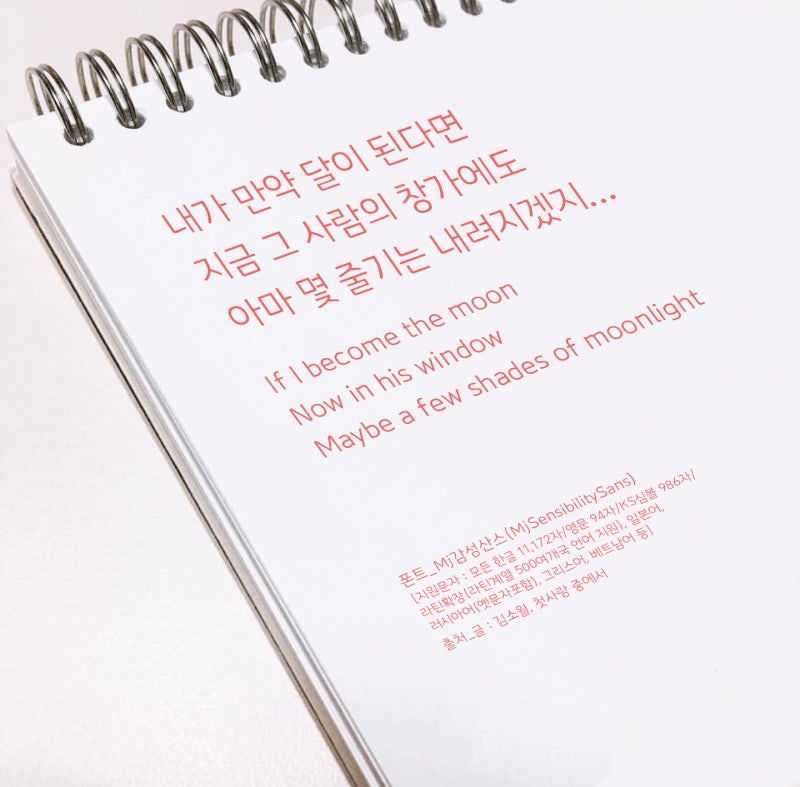 내가 만약 달이 된다면
지금 그 사람의 창가에도
아마 몇 줄기는 내려지겠지...
If I become the moon
Now in his window
Maybe a few shades of moonlight
폰트_Mj감성산스(MjSensibilitySans)
[지원문자 : 모든 한글 11,172자/영문 94자/KS심볼 986자/
라틴확장(라틴계열 500여개국 언어 지원), 일본어,
러시아어(옛문자포함), 그리스어, 베트남어 등]
출처_글 : 김소월, 첫사랑 중에서